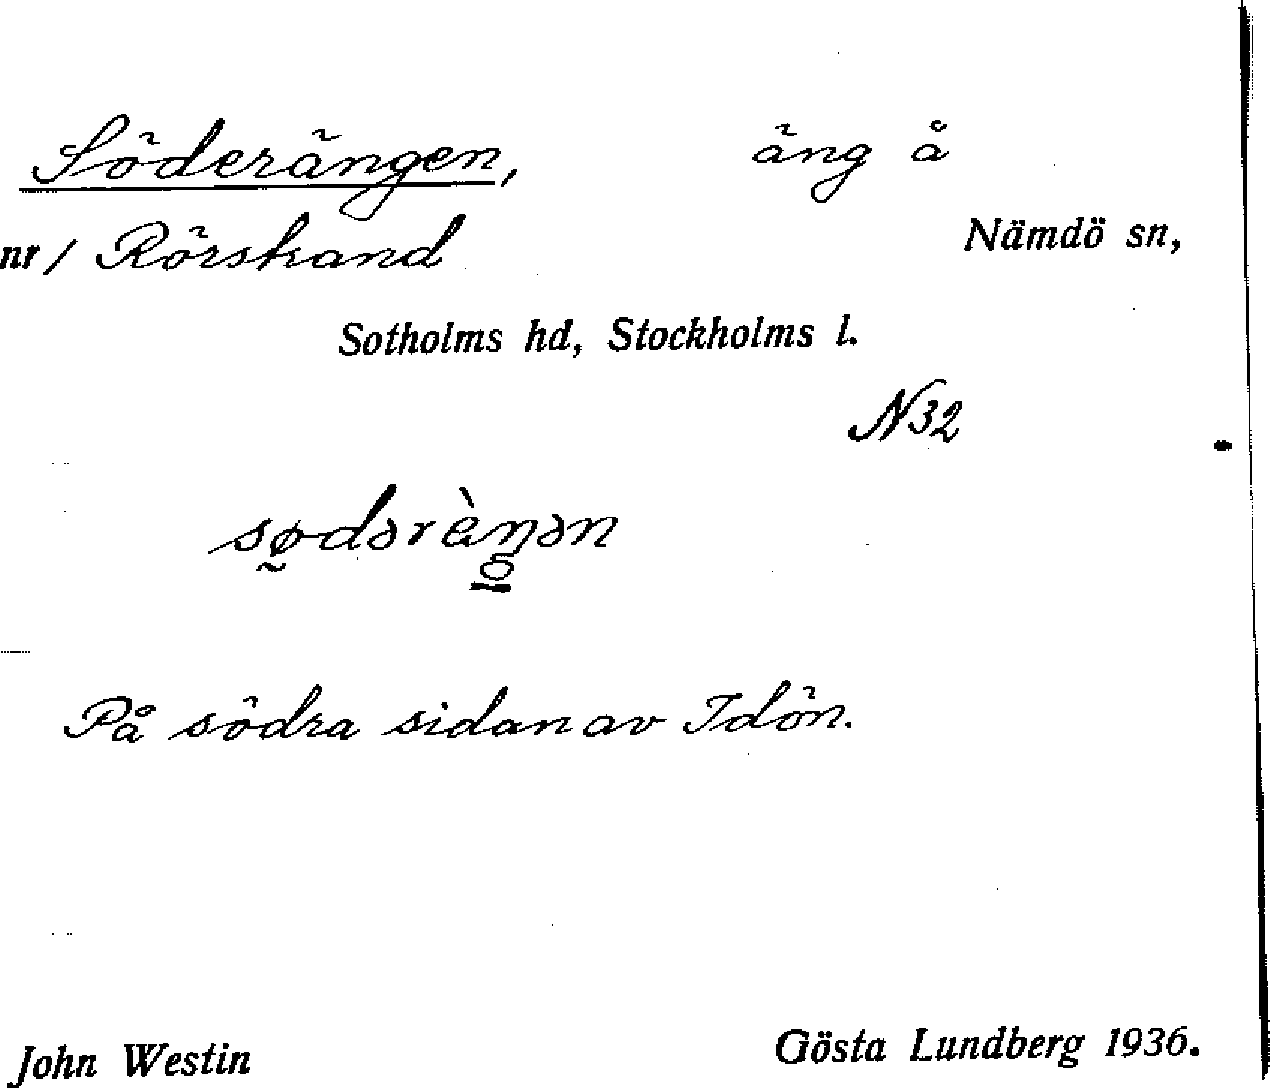 Söderängen, äng å
nr / Rörstrand Nämdö sn,
Sotholms hd, Stockholms l.
N 32
sødərὲŋən
På södra sidan av Idön.
John Westin Gösta Lundberg 1936.